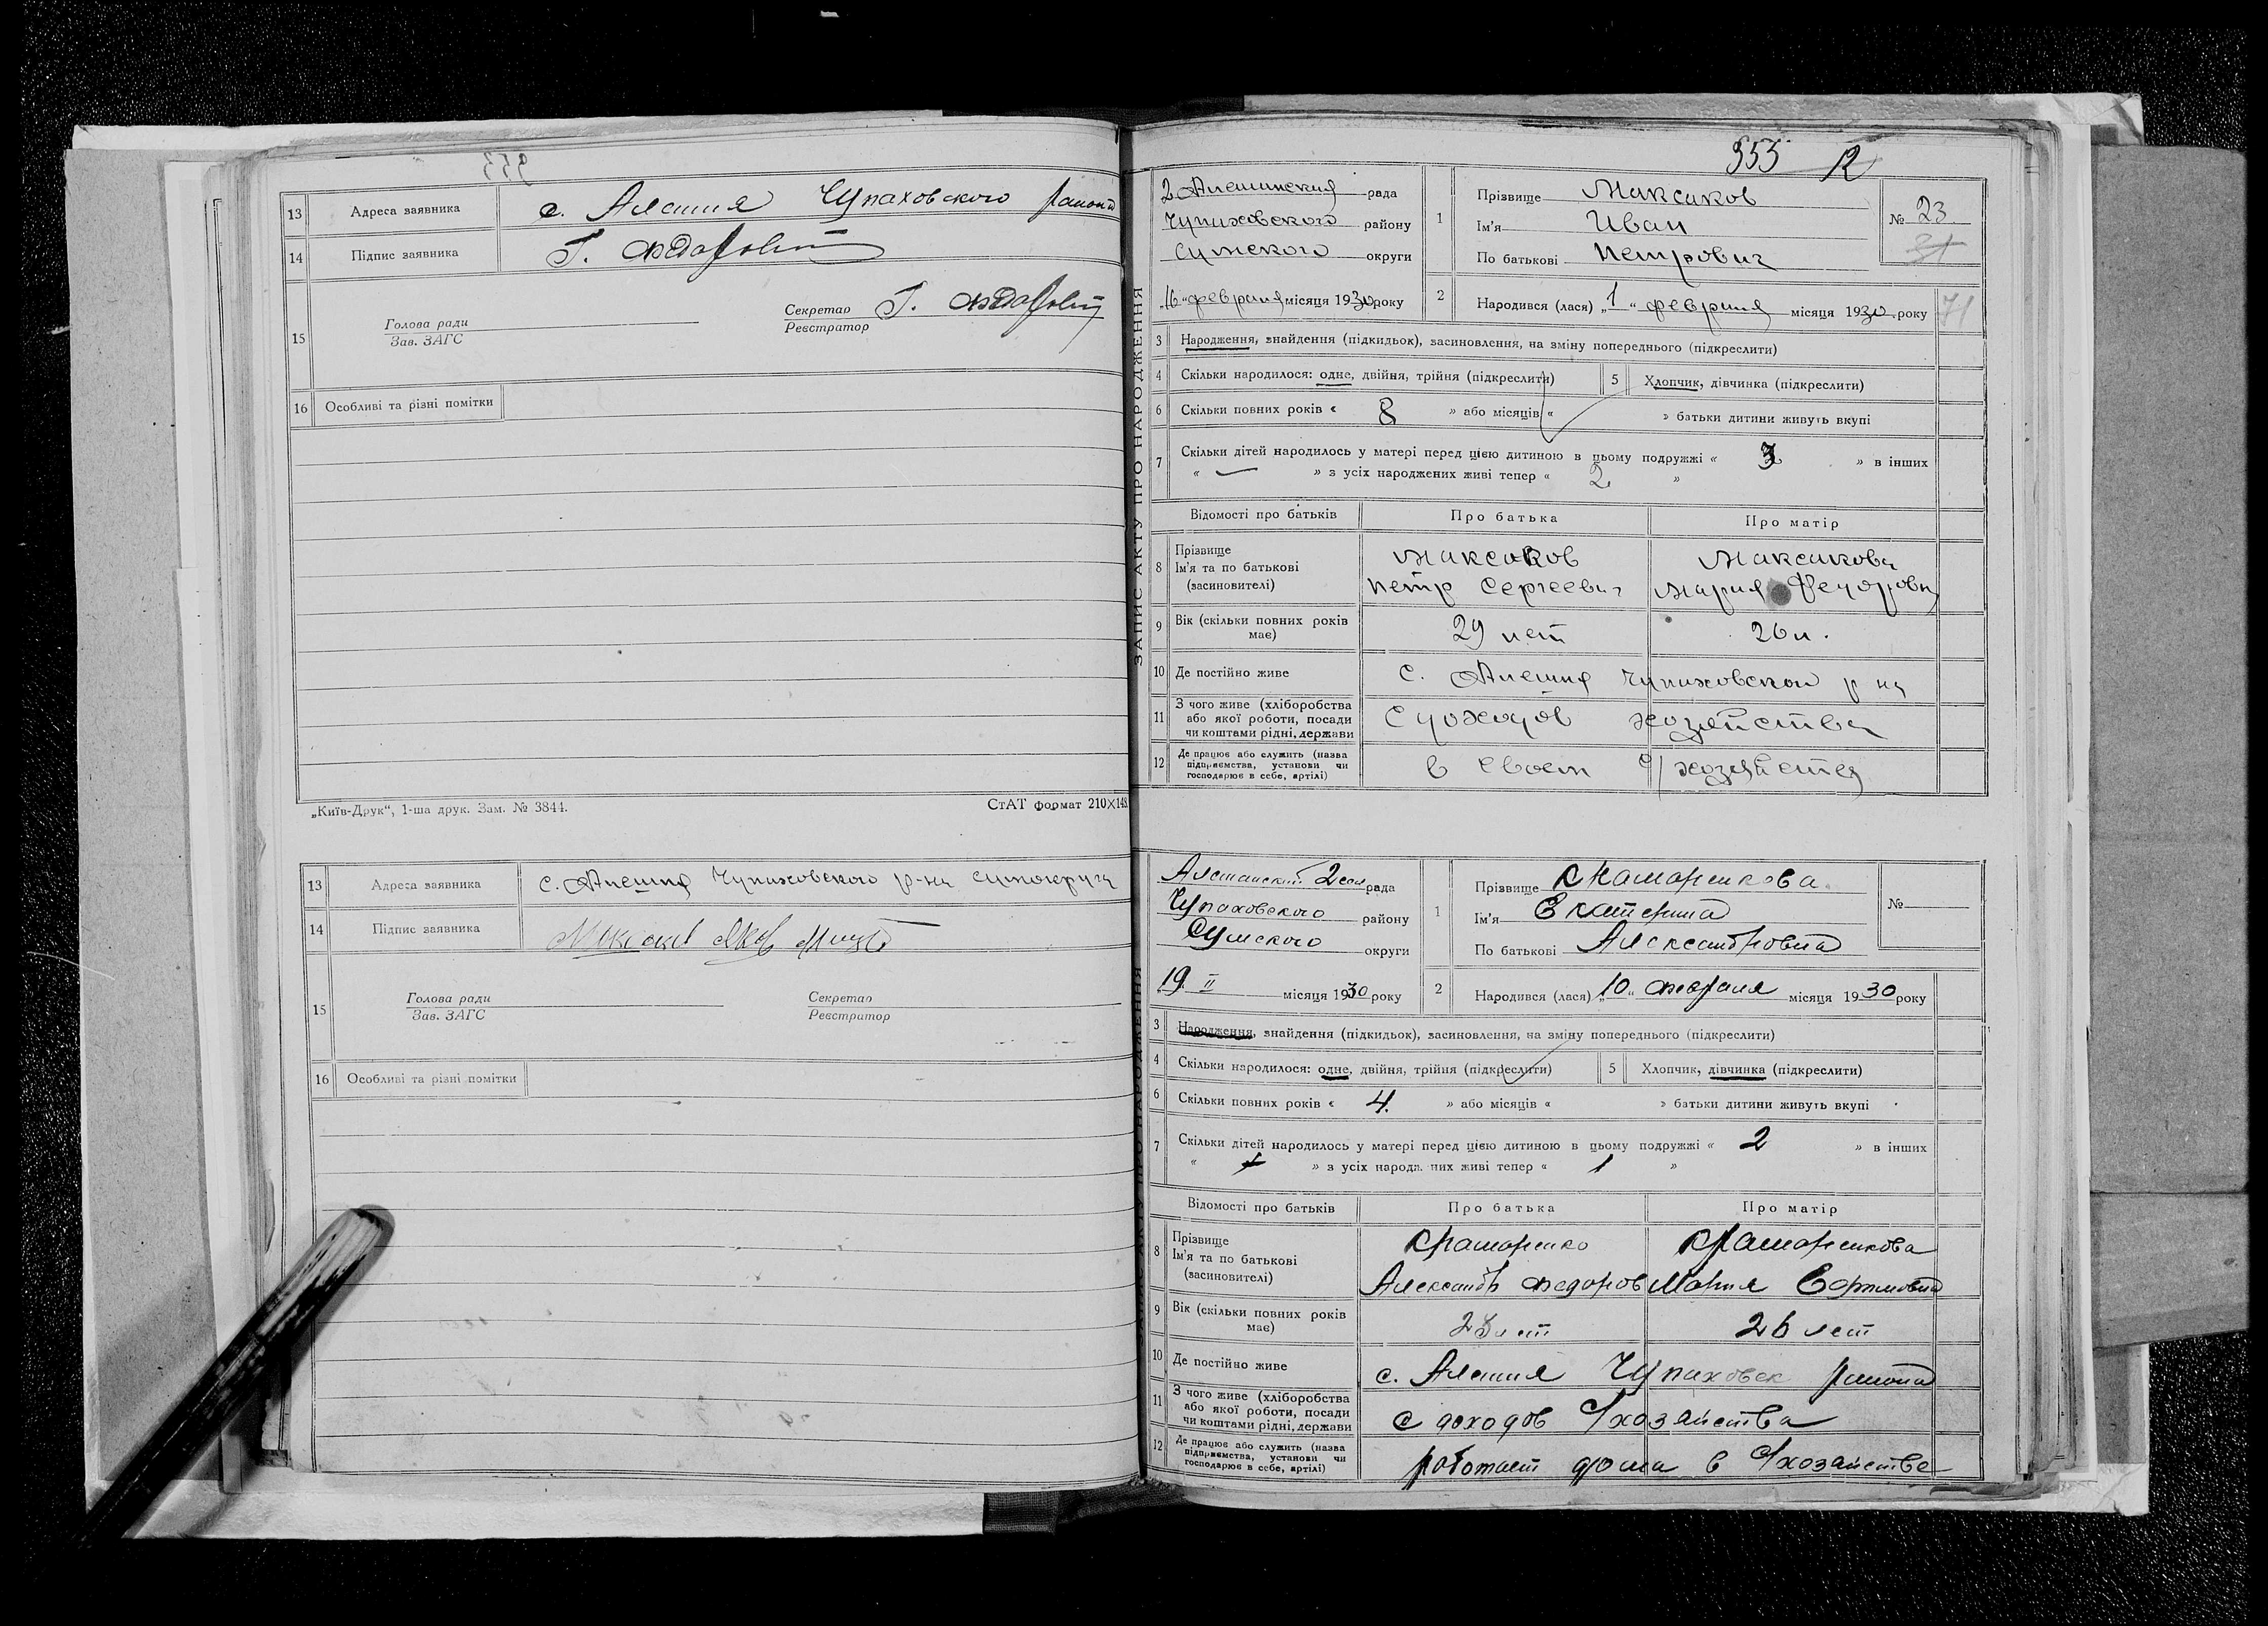 13 Адреса заявника с. Алешня Чупаховского района
14 Підпис заявника Г.
15 Голова ради
Зав. ЗАГС
Секретар Г.
Реєстратор
16 Особливі та різні помітки
„Київ-Друк“, 1-ша друк. Зам. № 3844.
СтАТ формат 210×148
13 Адреса заявника с. Алешня Чупаховского р-на
14 Підпис заявника
15 Голова ради
Зав. ЗАГС
Секретар
Реєстратор
16 Особливі та різні помітки
355 12
ЗАПИС АКТУ ПРО НАРОДЖЕННЯ
2 Алешинская рада
Чупаховского району
Сумского округи
„16“ февраля місяця 1930 року
1 Прізвище Максаков
Ім'я Иван
По батькові Петрович
№ 23
31
2 Народився (лася) „1“ февраля місяця 1930 року
71
3 Народження, знайдення (підкидьок), засиновлення, на зміну попереднього (підкреслити)
4 Скільки народилося: одне, двійня, трійня (підкреслити) 5 Хлопчик, дівчинка (підкреслити)
6 Скільки повних років « 8 » або місяців « » батьки дитини живуть вкупі
7 Скільки дітей народилось у матері перед цією дитиною в цьому подружжі « 3 » в інших
« — » з усіх народжених живі тепер « 2 »
Відомості про батьків Про батька Про матір
8 Прізвище
Ім'я та по батькові
(засиновителі)
Максаков
Петр Сергеевич
Максакова
Мария Федоровн
9 Вік (скільки повних років має) 29 лет 26 л.
10 Де постійно живе с. Алешня Чупаховского р на
11 З чого живе (хліборобства
або якої роботи, посади
чи коштами рідні, держави
С доходов хозяйства
12 Де працює або служить (назва
підприємства, установи чи
господарює в себе, артілі)
в своем с/хозяйстве
ЗАПИС АКТУ ПРО НАРОДЖЕННЯ
Алешанский 2 сел рада
Чупаховского району
Сумского округи
19. II місяця 1930 року
1 Прізвище Крамаренкова
Ім'я Екатерина
По батькові Александровна
№
2 Народився (лася) „10“ февраля місяця 1930 року
3 Народження, знайдення (підкидьок), засиновлення, на зміну попереднього (підкреслити)
4 Скільки народилося: одне, двійня, трійня (підкреслити) 5 Хлопчик, дівчинка (підкреслити)
6 Скільки повних років « 4. » або місяців « » батьки дитини живуть вкупі
7 Скільки дітей народилось у матері перед цією дитиною в цьому подружжі « 2 » в інших
« » з усіх народжених живі тепер « 1 »
Відомості про батьків Про батька Про матір
8 Прізвище
Ім'я та по батькові
(засиновителі)
Крамаренко
Александр Федоров
Крамаренкова
Мария Ефимовна
9 Вік (скільки повних років має) 28 лет 26 лет
10 Де постійно живе с. Алешня Чупаховск района
11 З чого живе (хліборобства
або якої роботи, посади
чи коштами рідні, держави
с доходов с/хозяйства
12 Де працює або служить (назва
підприємства, установи чи
господарює в себе, артілі)
работает дома в с/хозайстве